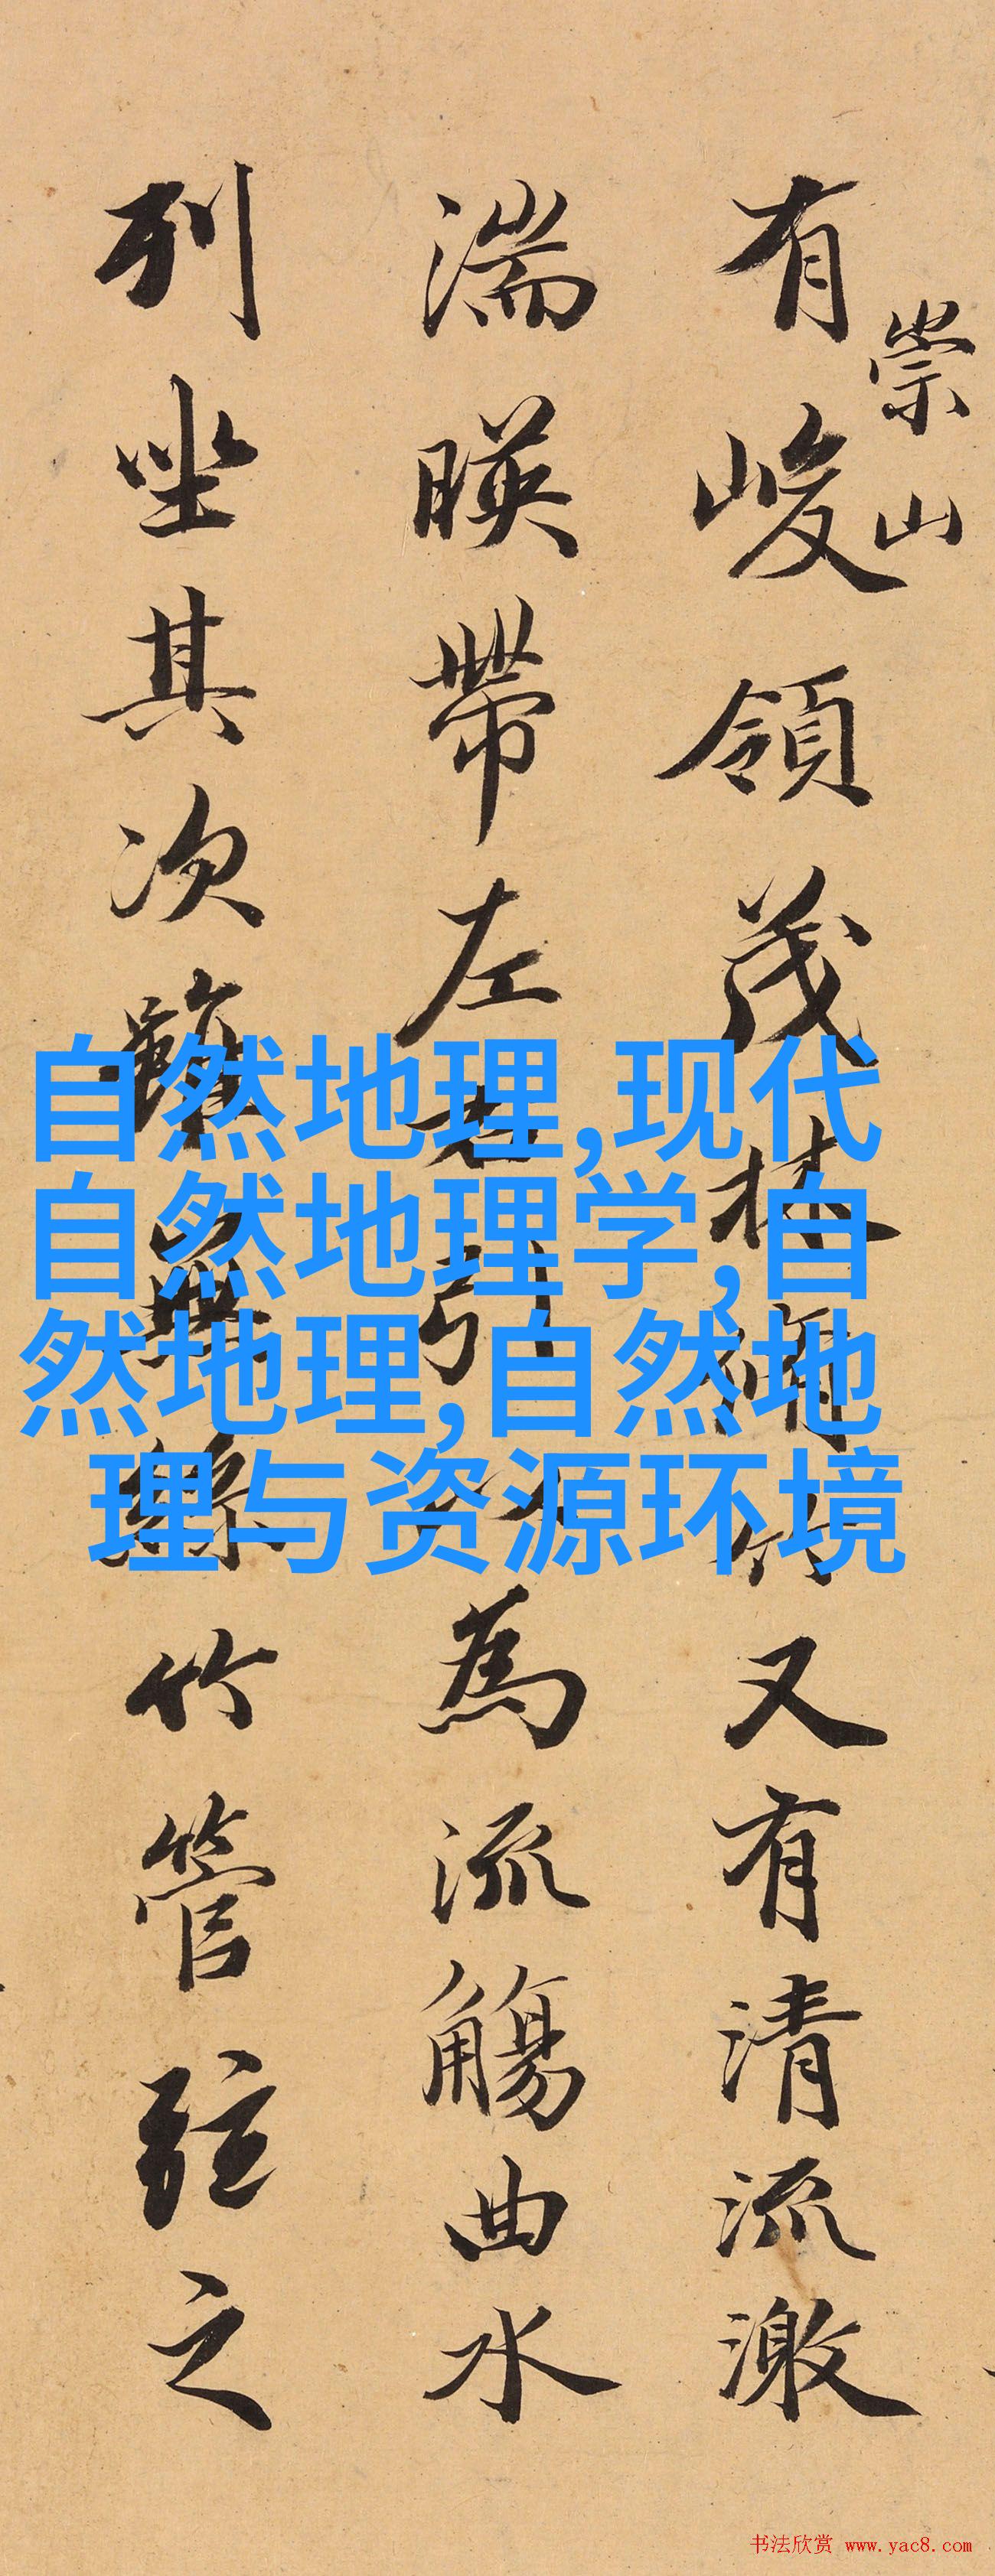 崇山
有峻領茂林竹又有清流激
湍暎帶左右引為流觴曲水
列坐其次雖無竹管弦之
自然地理,现代
自然地理学,自
然地理,自然地
理与资源环境
书法欣赏 www.yac8.com